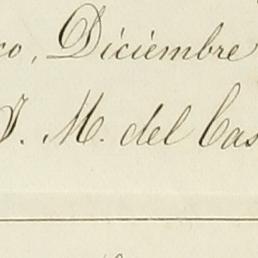 co, Diciembre
J. M. del Cas